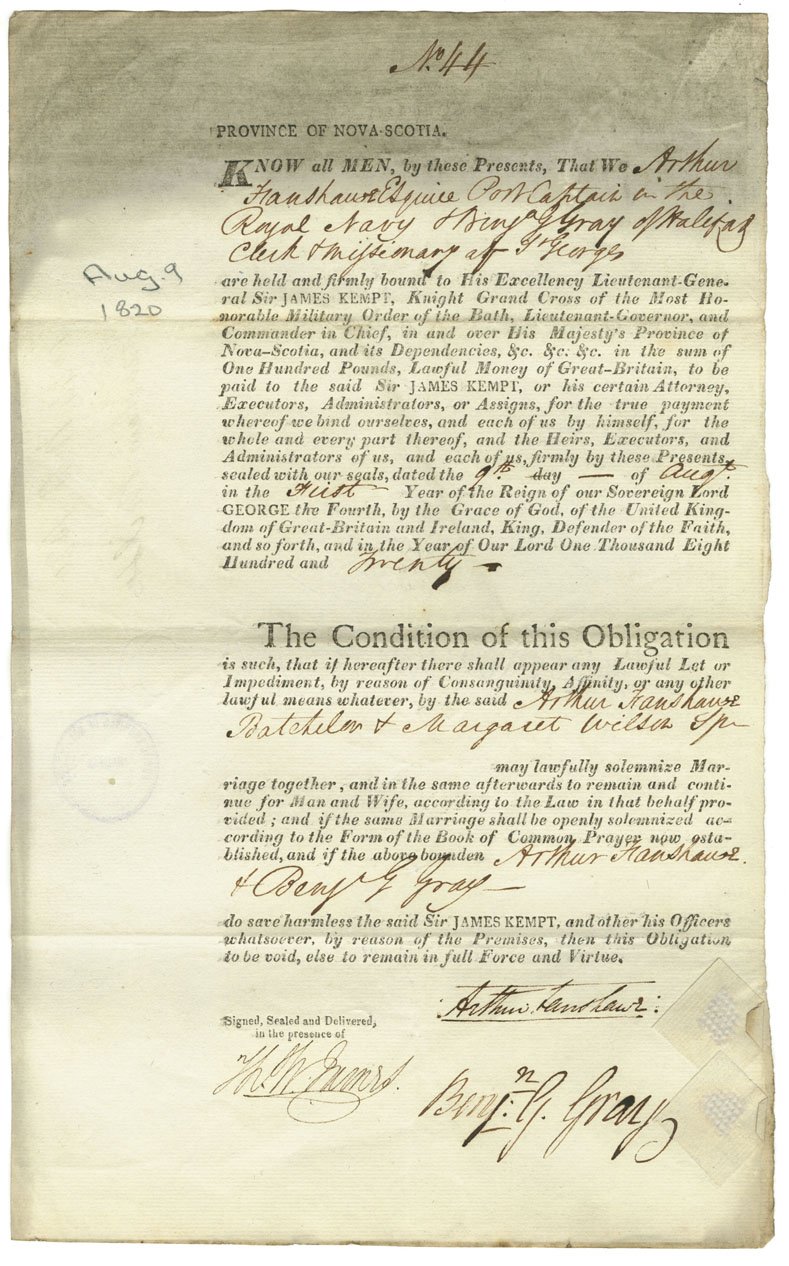 No. 44
PROVINCE OF NOVA-SCOTIA.
KNOW all MEN, by these Presents, That We Arthur
Fanshawe Esquire Post Captain in the
Royal Navy & Benjn G Gray of Halifax
Clerk & Missionary at St Georges
Aug. 9
1820
are held and firmly bound to His Excellency Lieutenant-Gene-
ral Sir JAMES KEMPT, Knight Grand Cross of the Most Ho-
norable Military Order of the Bath, Lieutenant-Governor, and
Commander in Chief, in and over His Majesty's Province of
Nova-Scotia, and its Dependencies, &c. &c. &c. in the sum of
One Hundred Pounds, Lawful Money of Great-Britain, to be
paid to the said Sir JAMES KEMPT, or his certain Attorney,
Executors, Administrators, or Assigns, for the true payment
whereof we bind ourselves, and each of us by himself, for the
whole and every part thereof, and the Heirs, Executors, and
Administrators of us, and each of us, firmly by these Presents,
sealed with our seals, dated the 9th day — of Augt.
in the First Year of the Reign of our Sovereign Lord
GEORGE the Fourth, by the Grace of God, of the United King-
dom of Great-Britain and Ireland, King, Defender of the Faith,
and so forth, and in the Year of Our Lord One Thousand Eight
Hundred and Twenty —
The Condition of this Obligation
is such, that if hereafter there shall appear any Lawful Let or
Impediment, by reason of Consanguinity, Affinity, or any other
lawful means whatever, by the said Arthur Fanshawe
Batchelor & Margaret Wilson Spr
may lawfully solemnize Mar-
riage together, and in the same afterwards to remain and conti-
nue for Man and Wife, according to the Law in that behalf pro-
vided; and if the same Marriage shall be openly solemnized ac-
cording to the Form of the Book of Common Prayer now esta-
blished, and if the above bounden Arthur Fanshawe.
& Benjn G Gray —
do save harmless the said Sir JAMES KEMPT, and other his Officers
whatsoever, by reason of the Premises, then this Obligation
to be void, else to remain in full Force and Virtue.
Arthur Fanshawe.
Signed, Sealed and Delivered,
in the presence of
Thos. W. James.
Benjn: G. Gray